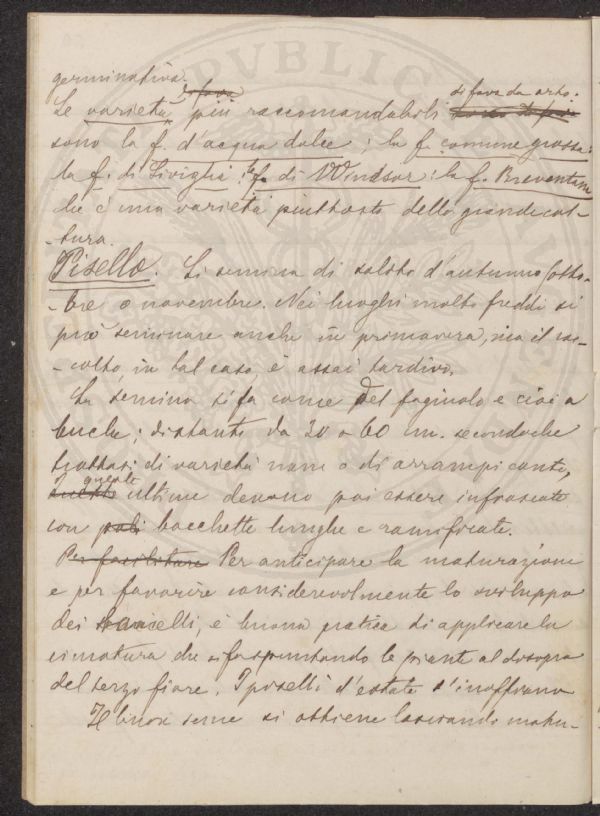 germinativa.
Le varietà più raccomandabili di fava da orto
sono la f. d'acqua dolce; la f. comune grossa;
la f. di Siviglia; la f. di Windsor; la f. Breventana
che è una varietà piuttosto della grande col-
-tura.
Pisello. Si semina di solito d'autunno (otto-
-bre o novembre. Nei luoghi molto freddi si
può seminare anche in primavera, ma il rac-
-colto, in tal caso, è assai tardivo.
La semina si fa come pel fagiuolo e cioè a
buche; distanti da 30 a 60 cm. secondochè
trattasi di varietà nane o di arrampicanti,
queste ultime devono poi essere infrascate
con pali bacchette lunghe e ramificate.
Per facilitare Per anticipare la maturazione
e per favorire considerevolmente lo sviluppo
dei baccelli, è buona pratica di applicare la
cimatura che si fa spuntando le piante al disopra
del terzo fiore. I piselli d'estate s'inaffiano
Il buon seme si ottiene lasciando matu-